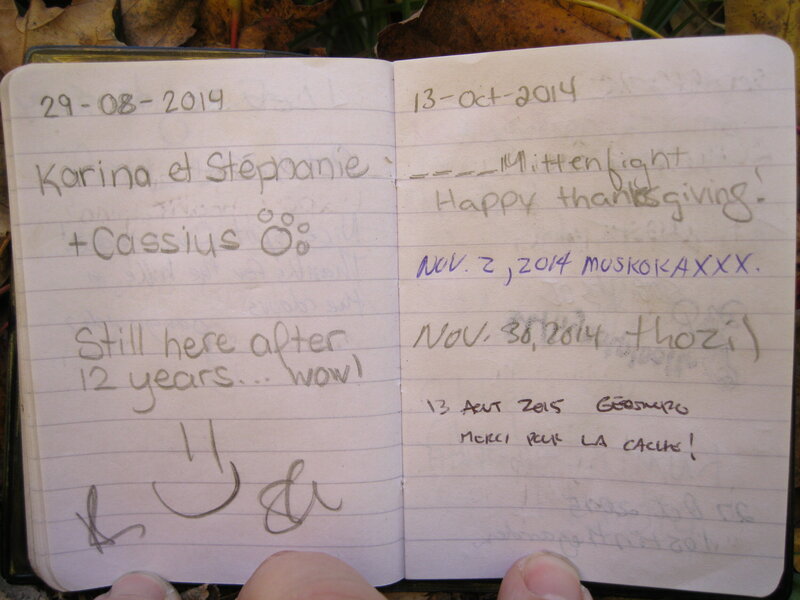 29-08-2014
Karina et Stéphanie
+Cassius
Still here after
12 years... wow!
13-Oct-2014
____Mittenfight
Happy thanksgiving!
NOV. 2, 2014 MUSKOKAXXX.
NOV. 30, 2014 thozi)
13 AOUT 2015
MERCI POUR LA CACHE!